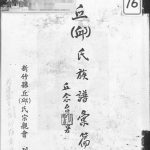 16
丘(邱)氏族譜彙篇
丘念台署
新竹縣丘(邱)氏宗親會